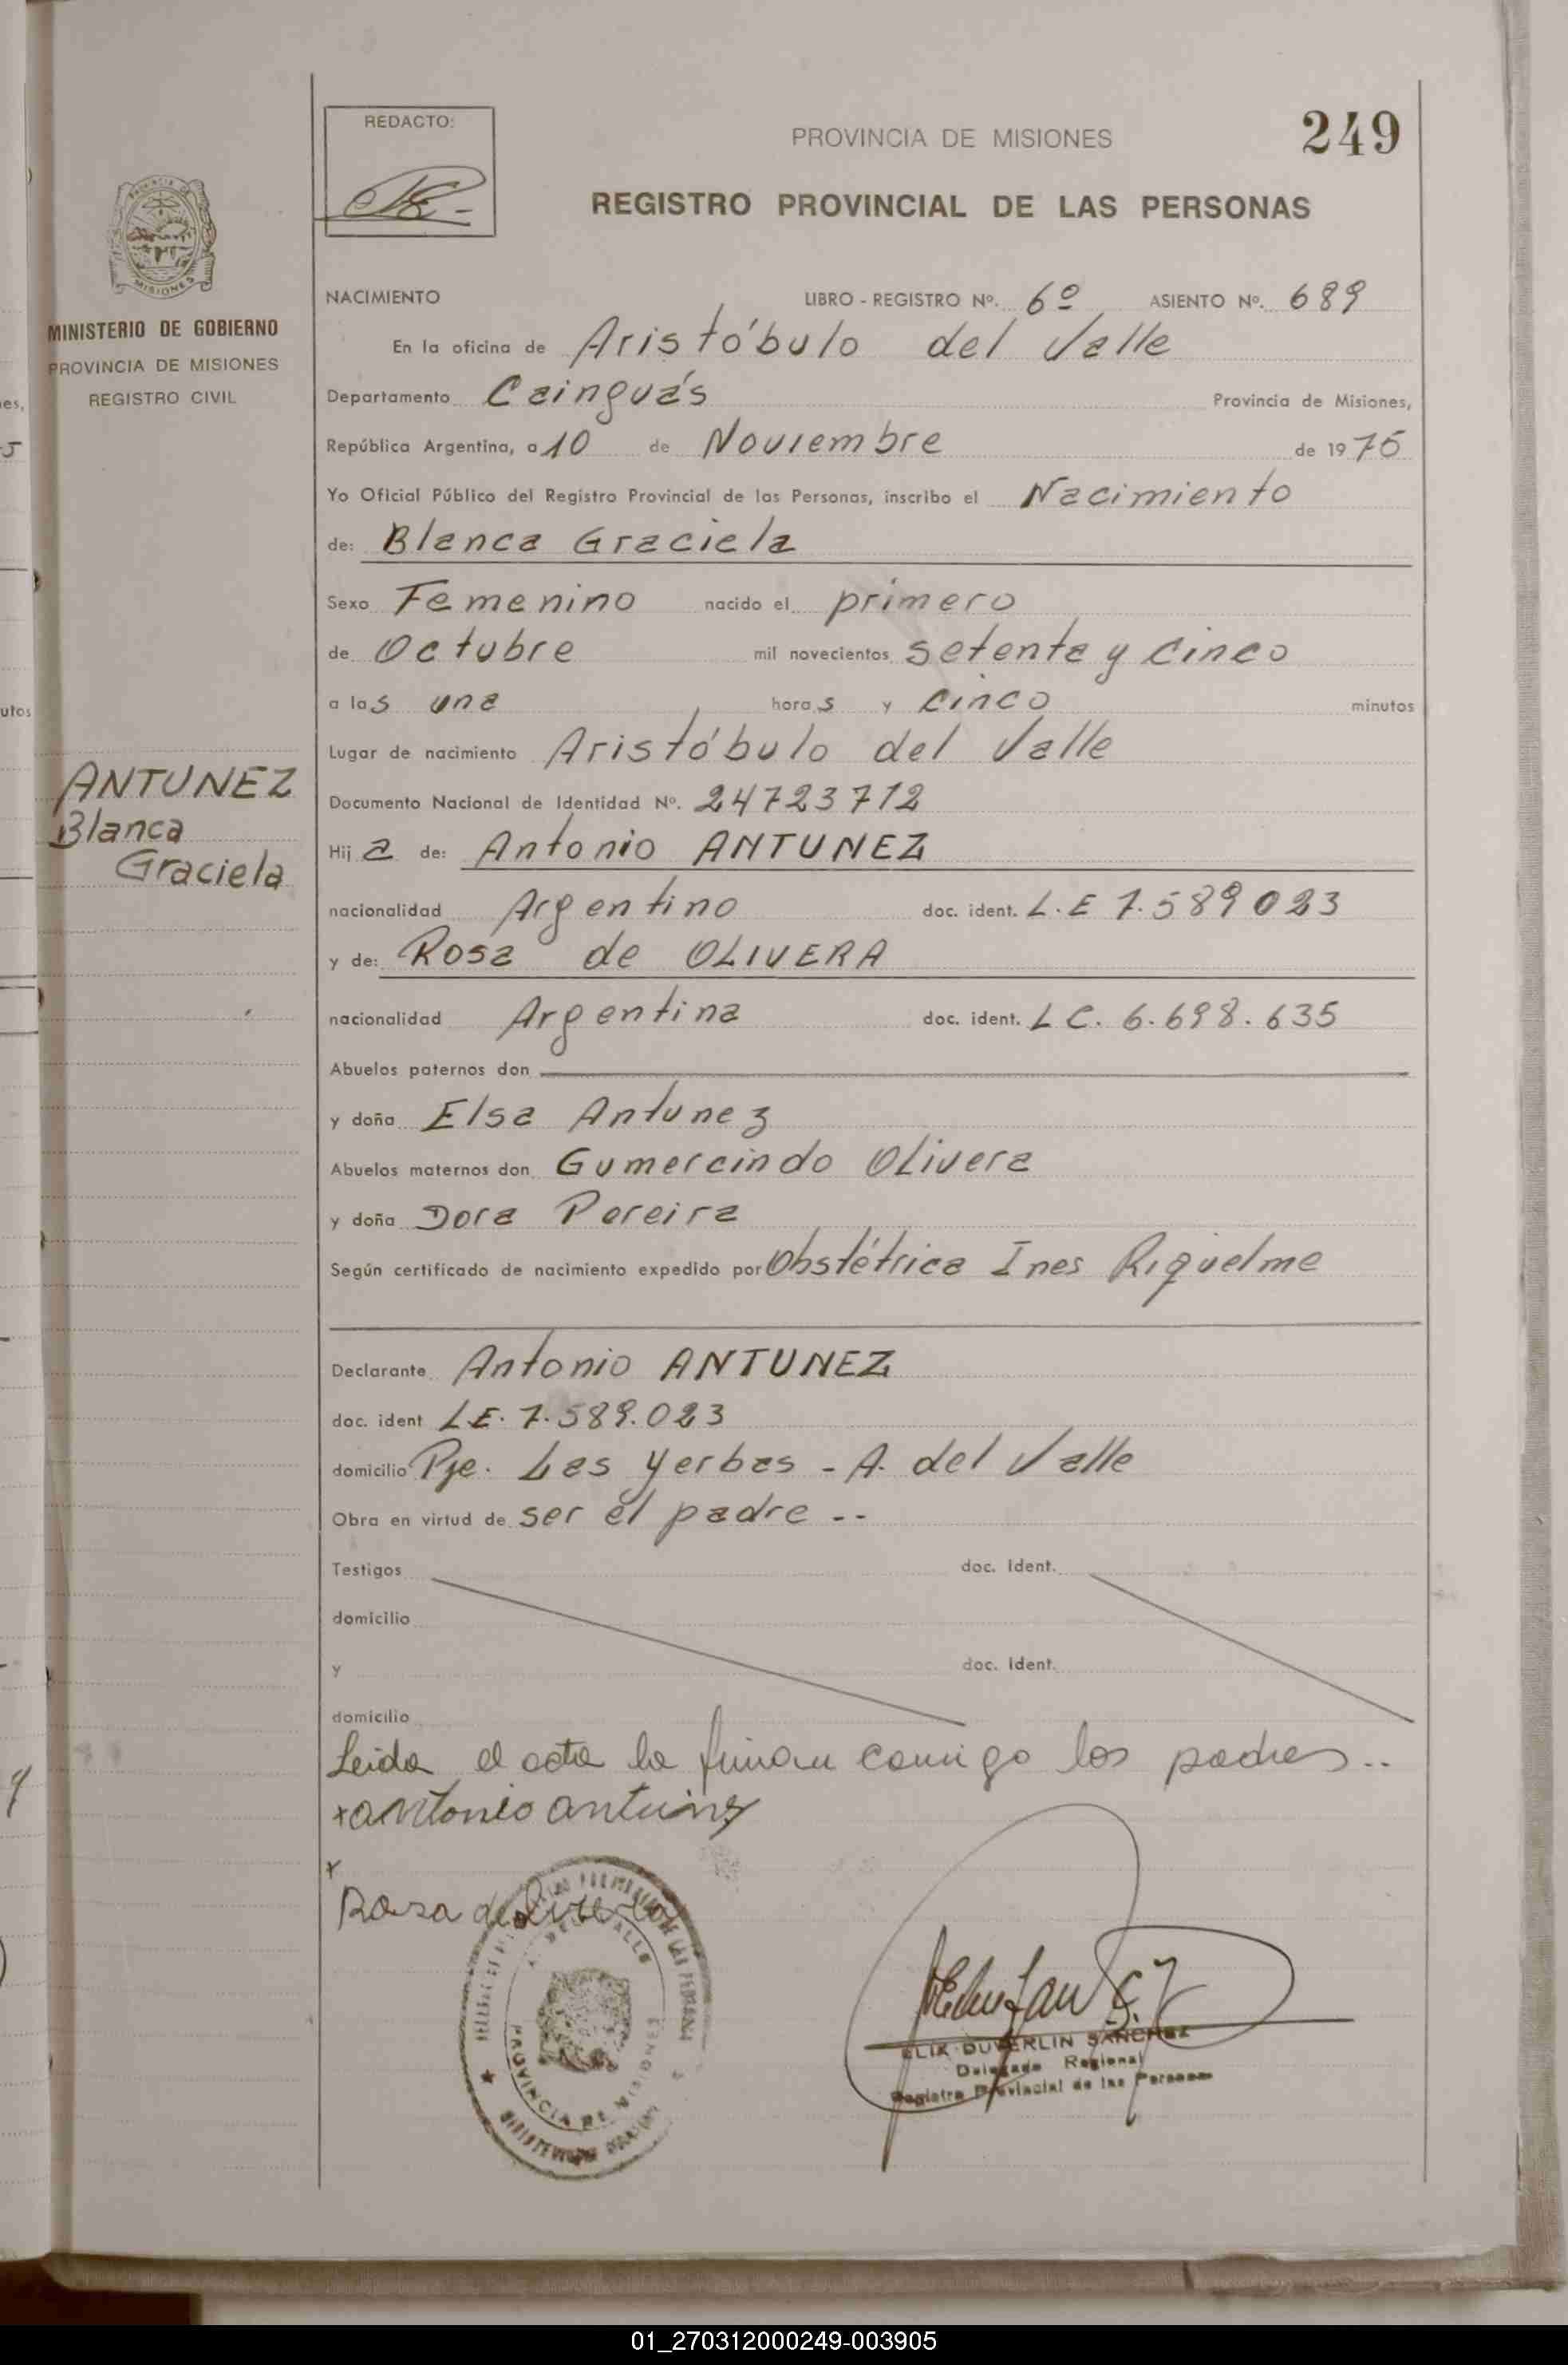 249
REDACTO:
PROVINCIA DE MISIONES
REGISTRO PROVINCIAL DE LAS PERSONAS
MINISTERIO DE GOBIERNO
PROVINCIA DE MISIONES
REGISTRO CIVIL
ANTUNEZ
Blanca
Graciela
NACIMIENTO LIBRO - REGISTRO Nº. 6º ASIENTO Nº. 689
En la oficina de Aristóbulo del Valle
Departamento Cainguás Provincia de Misiones,
República Argentina, a 10 de Noviembre de 1975
Yo Oficial Público del Registro Provincial de las Personas, inscribo el Nacimiento
de: Blanca Graciela
Sexo Femenino nacido el primero
de Octubre mil novecientos setenta y cinco
a las una horas y cinco minutos
Lugar de nacimiento Aristóbulo del Valle
Documento Nacional de Identidad Nº. 24723712
Hija de: Antonio ANTUNEZ
nacionalidad Argentino doc. ident. L.E 7.589023
y de: Rosa de OLIVERA
nacionalidad Argentina doc. ident. L C. 6.698.635
Abuelos paternos don
y doña Elsa Antunez
Abuelos maternos don Gumercindo Olivera
y doña Dora Pereira
Según certificado de nacimiento expedido por Obstétrica Ines Riquelme
Declarante Antonio ANTUNEZ
doc. ident L.E. 7.589.023
domicilio Pje. Las Yerbas - A. del Valle
Obra en virtud de ser el padre --
Testigos doc. Ident.
domicilio
y doc. Ident.
domicilio
Leida el acta la firman comigo los padres..
x antonio antunez
x
Rosa de Olivera
A. DEL VALLE
PROVINCIA DE MISIONES
DUVERLIN SANCHEZ
Delegado Regional
Registro Provincial de las Personas
01_270312000249-003905